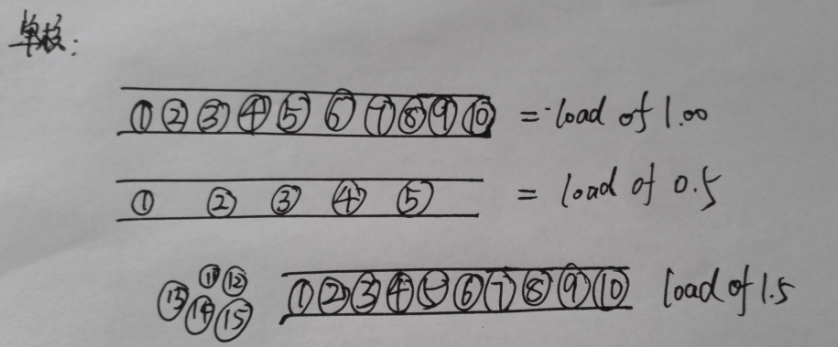 单核:
①②③④⑤⑥⑦⑧⑨⑩ = load of 1.00
① ② ③ ④ ⑤ = load of 0.5
⑪ ⑫ ⑬ ⑭ ⑮ ①②③④⑤⑥⑦⑧⑨⑩ load of 1.5